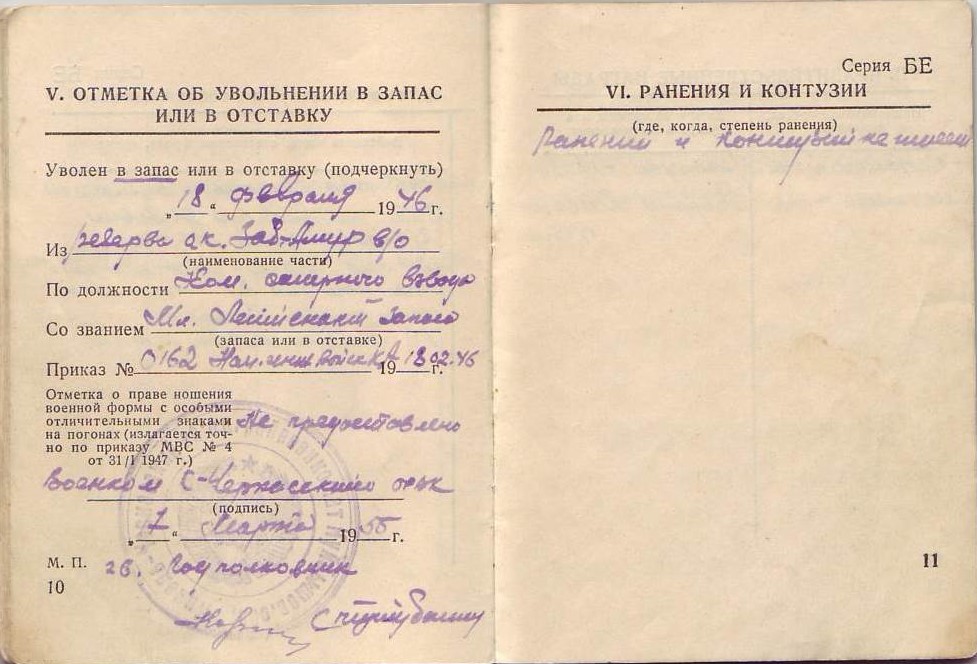 V. ОТМЕТКА ОБ УВОЛЬНЕНИИ В ЗАПАС
ИЛИ В ОТСТАВКУ
Уволен в запас или в отставку (подчеркнуть)
„18“ февраля 1946 г.
Из резерва ок. Заб-Амур в/о
(наименование части)
По должности Ком. саперного взвода
Со званием Мл. Лейтенант запаса
(запаса или в отставке)
Приказ № 0162 1918.02.46 г.
Отметка о праве ношения
военной формы с особыми
отличительными знаками
на погонах (излагается точ-
но по приказу МВС № 4
от 31/I 1947 г.)
Не предоставлено
Военком С-
(подпись)
„7“ Марта 1955 г.
М. П. подполковник
10
Серия БЕ
VI. РАНЕНИЯ И КОНТУЗИИ
(где, когда, степень ранения)
Ранений и контузий не имеет
11